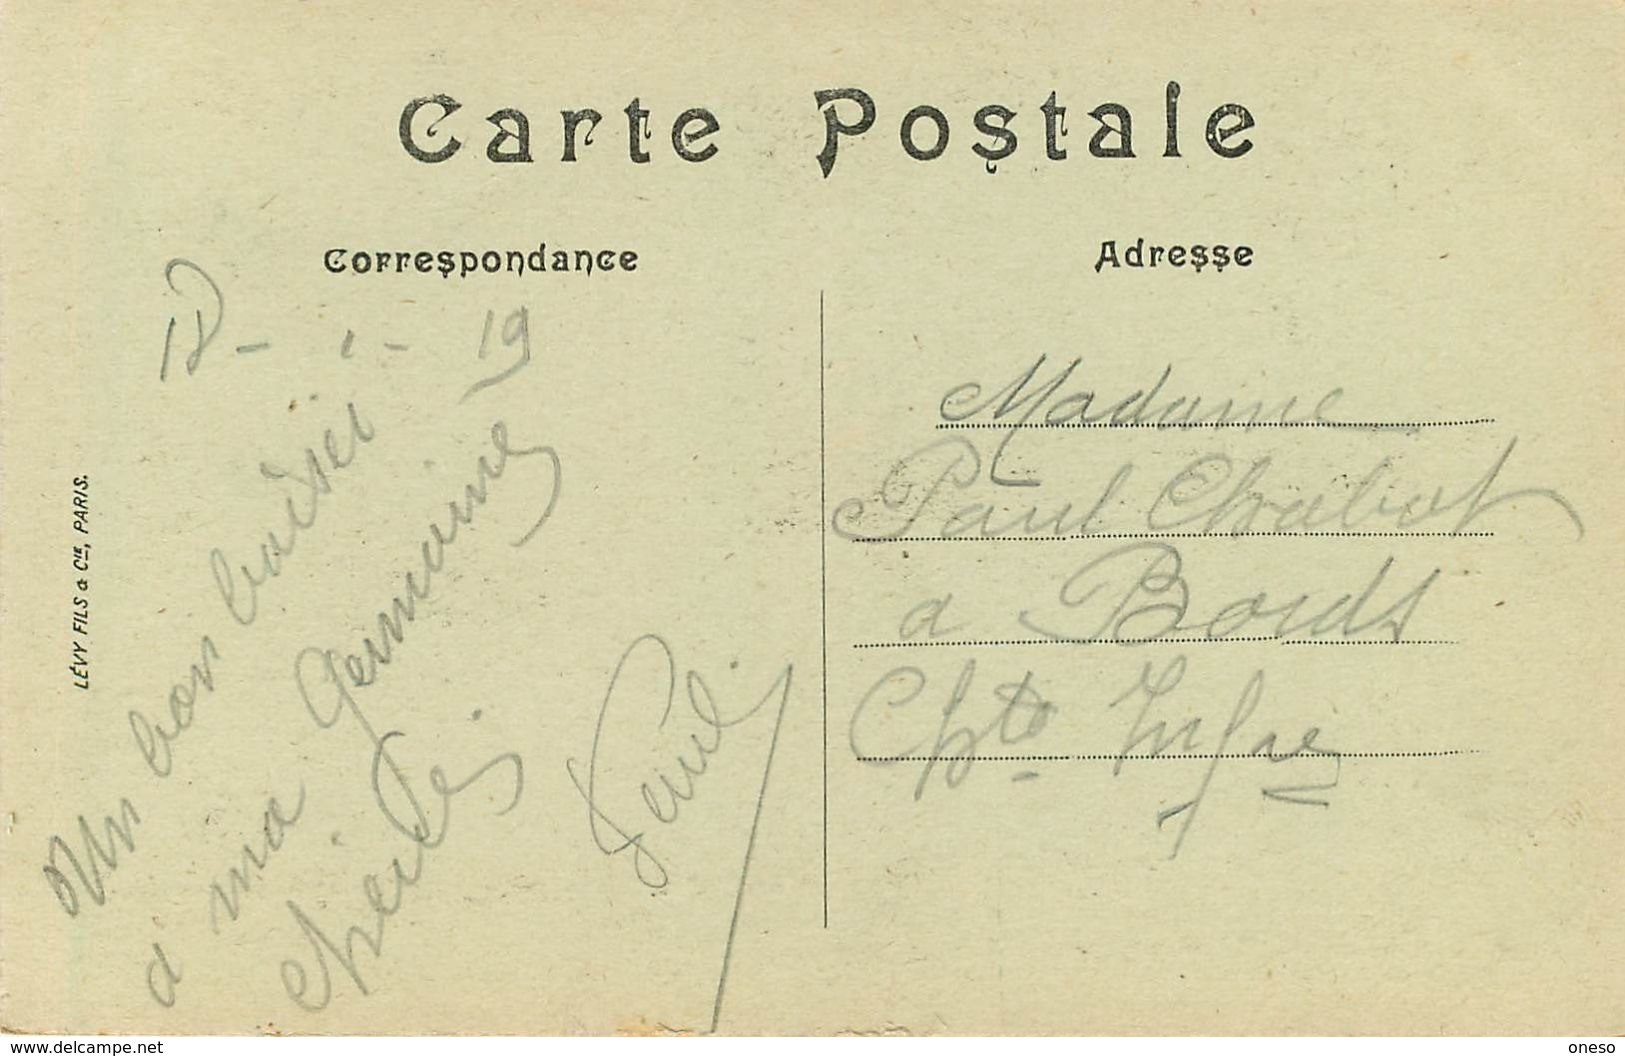 Carte Postale
Correspondance
Adresse
LÉVY FILS & Cie, PARIS.
1 - 19
Un bon baiser
à ma Germaine
chérie
Paul
Madame
Paul Chabot
a Bords
Chte Infre
www.delcampe.net
oneso